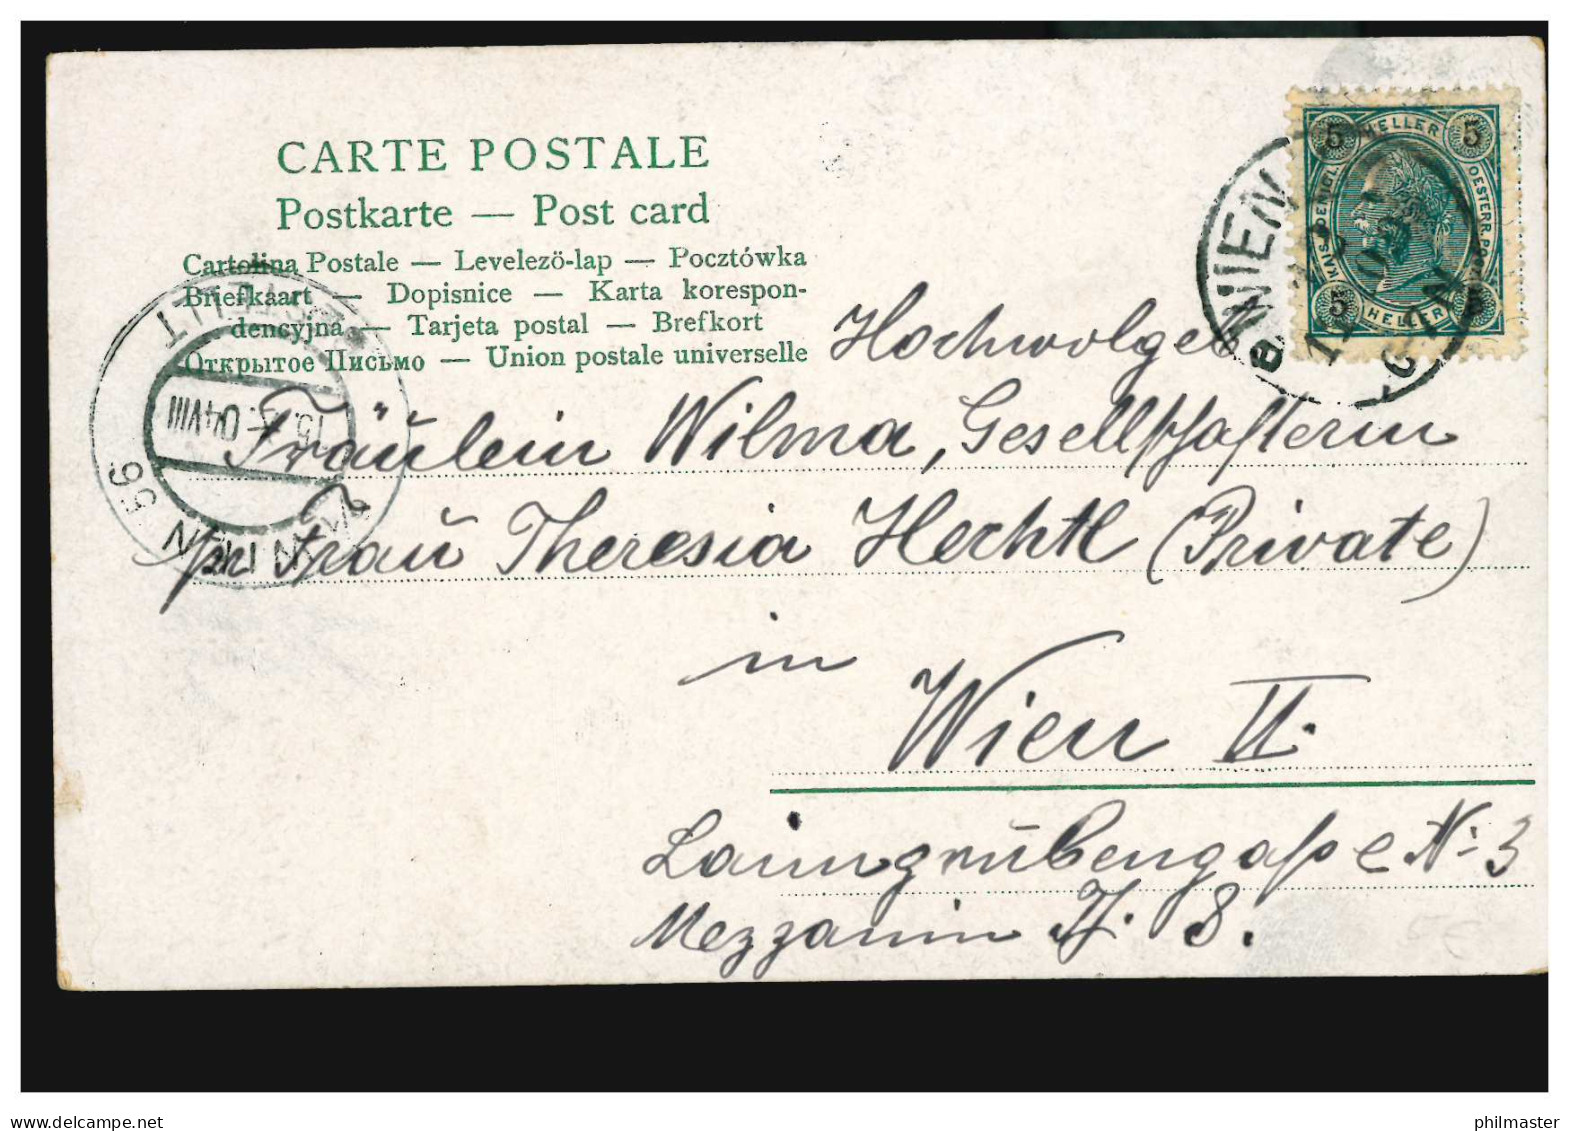 CARTE POSTALE
Postkarte — Post card
Cartolina Postale — Levelező-lap — Pocztówka
Briefkaart — Dopisnice — Karta korespon-
dencyjna — Tarjeta postal — Brefkort
Открытое Письмо — Union postale universelle
5 HELLER 5
KAIS. OESTERR. POST
5 HELLER 5
WIEN
Hochwolgeb
Fräulein Wilma, Gesellschafterin
pr Frau Theresia Hechtl (Private)
in
Wien II.
Laimgrübengaße No 3
Mezzanin T. 8.
BESTELLT
15. 04 VIII
WIEN 56
delcampe.net
philmaster